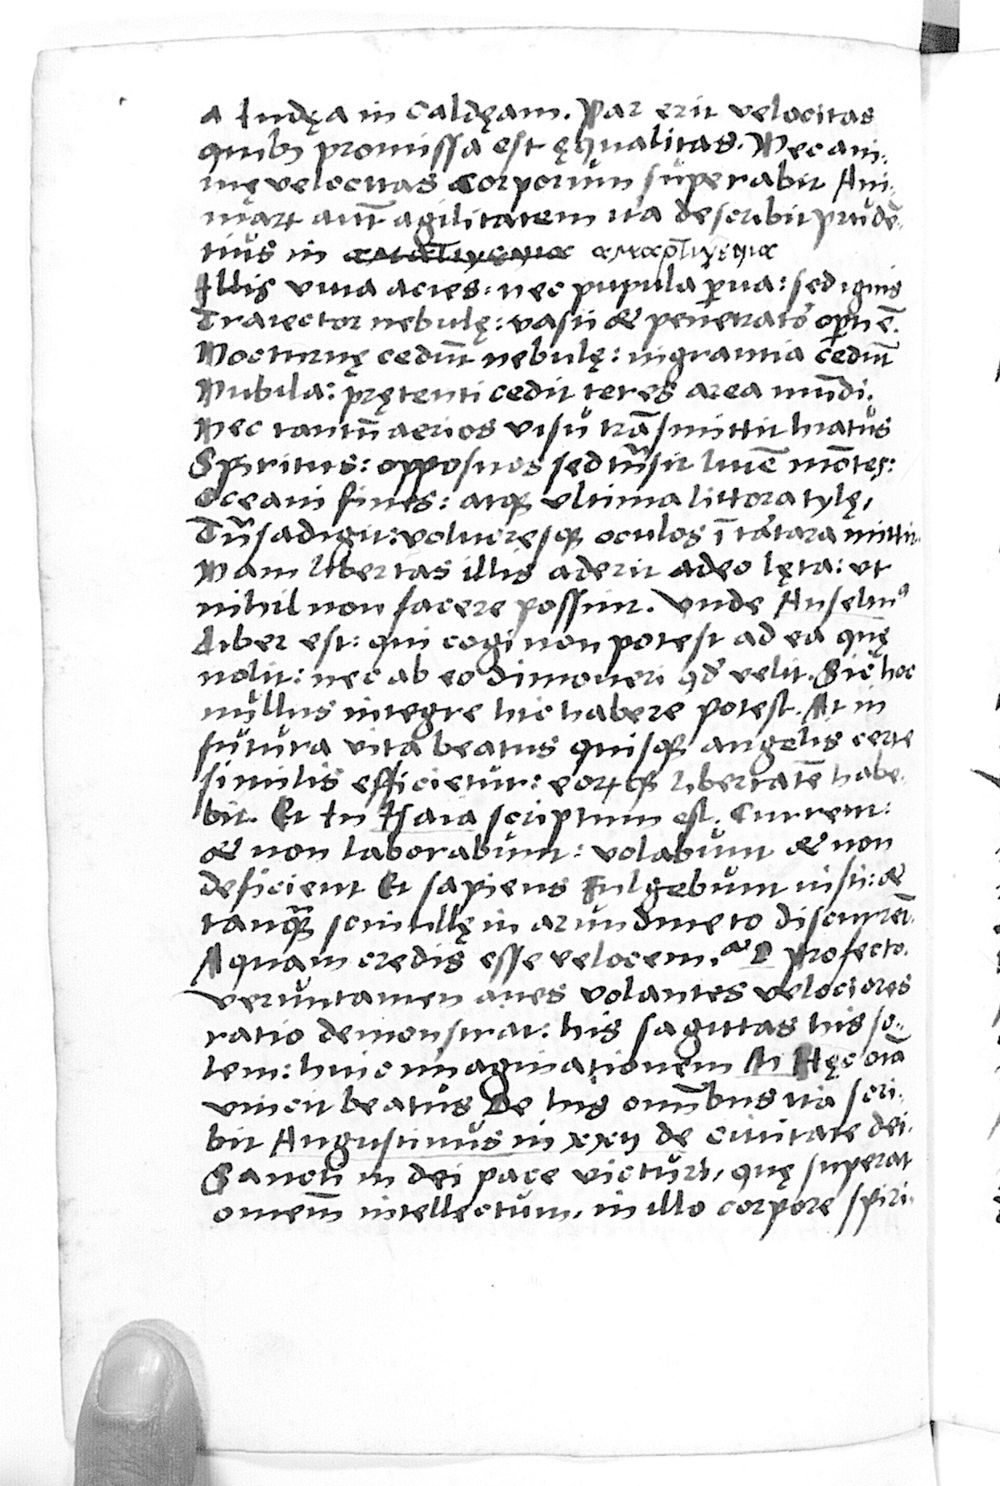 a Iudęa in Caldęam. Par erit velocitas
quibꝫ promissa est ęqualitas. Nec ani-
mę velocitas Corporum superabit Ani-
marꝝ aut̄ agilitatem ita describit prudē-
tius in αμαρτιγενια
Illis viva acies: nec pupula ꝑva: sed ignis
Traiector nebulę: vasti & penetrator̄ opꝑtē.
Nocturnę cedūt nebulę: nigrantia cedūt
Nubila: prętenti cedit teres area mūdi.
Nec tantū aerios visu trāsmittit hiatus
Spiritus: oppositos sed trāsit lumē mōtes:
Oceani fines: atqꝫ ultima littora tylę,
Trāsadigit: volucresqꝫ oculos ī tartara mittit.
Nam libertas illis aderit adeo lęta: ut
nihil non facere possint. Unde Anselmꝰ
Liber est: qui cogi non potest ad ea quę
nolit: nec ab eo dimoveri qđ velit. Sic hoc
nullus integre hic habere potest. At in
futura vita beatus quisqꝫ angelis certe
similis efficietur: eorꝝqꝫ libertatē habe-
bit. Et In Isaia scriptum est. Current:
& non laborabunt: volabunt & non
deficient Et sapiens Fulgebunt iusti: &
tanqꝫ scintillę in arundineto discurrēt.
A quam credis esse velocem? D Profecto.
veruntamen aves volantes velociores
ratio demonstrat: his sagittas his so-
lem: huic imaginationem At Hęc oīa
vincit beatus De his omnībus ita scri-
bit Augustinus in xxij de civitate dei.
Sancti in dei pace victuri, quę superat
omnem̄ intellectum, in illo corpore spiri-